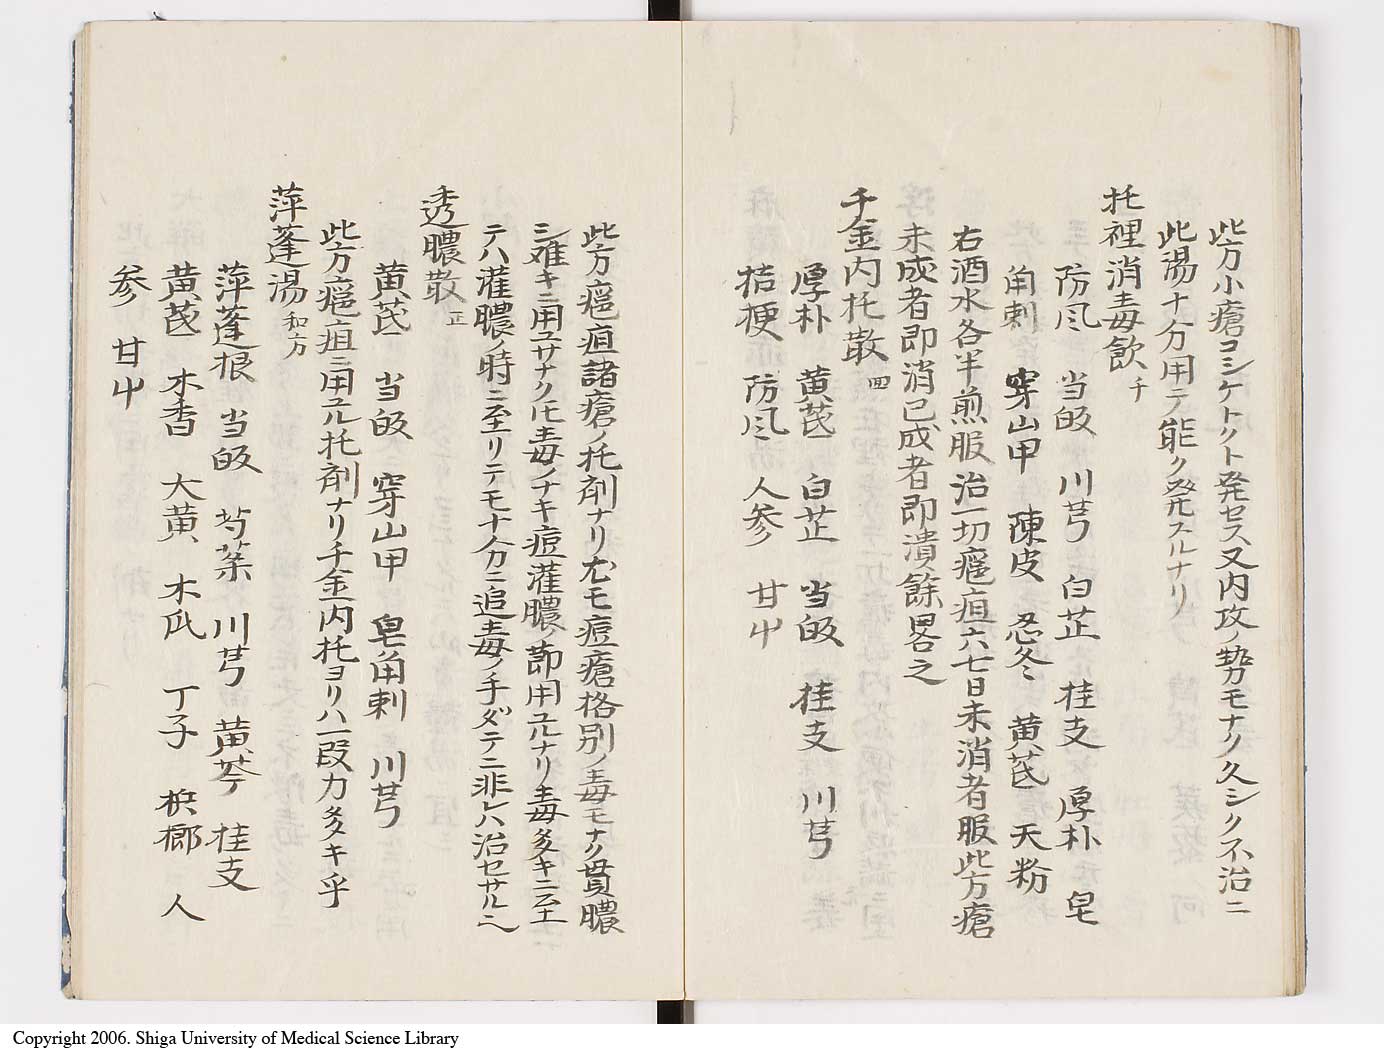 此方小瘡コシケトクト発セス又内攻ノ勢カモナク久シク不治ニ
此湯十分用テ能ク発スルナリ
托裡消毒飲 千
防風 当皈 川芎 白芷 桂支 厚朴 皂
角刺 穿山甲 陳皮 忍冬 黄芪 天粉
右酒水各半煎服治一切癰疽六七日未消者服此方瘡
未成者即消已成者即潰餘畧之
千金内托散 四
厚朴 黄芪 白芷 当皈 桂支 川芎
桔梗 防風 人参 甘艸
此方癰疽諸瘡ノ托剤ナリ尤モ痘瘡格別ノ毒モナク貫膿
シ难キニ用ユサナク𪜈毒ノナキ痘灌膿ノ莭用ユルナリ毒多キニ至
テハ灌膿ノ時ニ至リテモ十分ニ追毒ノ手ダテニ非レハ治セサル
透膿散 正
黄芪 当皈 穿山甲 皂角刺 川芎
此方癰疽ニ用ユル托剤ナリ千金内托ヨリハ一段力多キ乎
萍蓬湯 和方
萍蓬根 当皈 芍薬 川芎 黄芩 桂支
黄芪 木香 大黄 木瓜 丁子 梹榔 人
参 甘艸
Copyright 2006. Shiga University of Medical Science Library